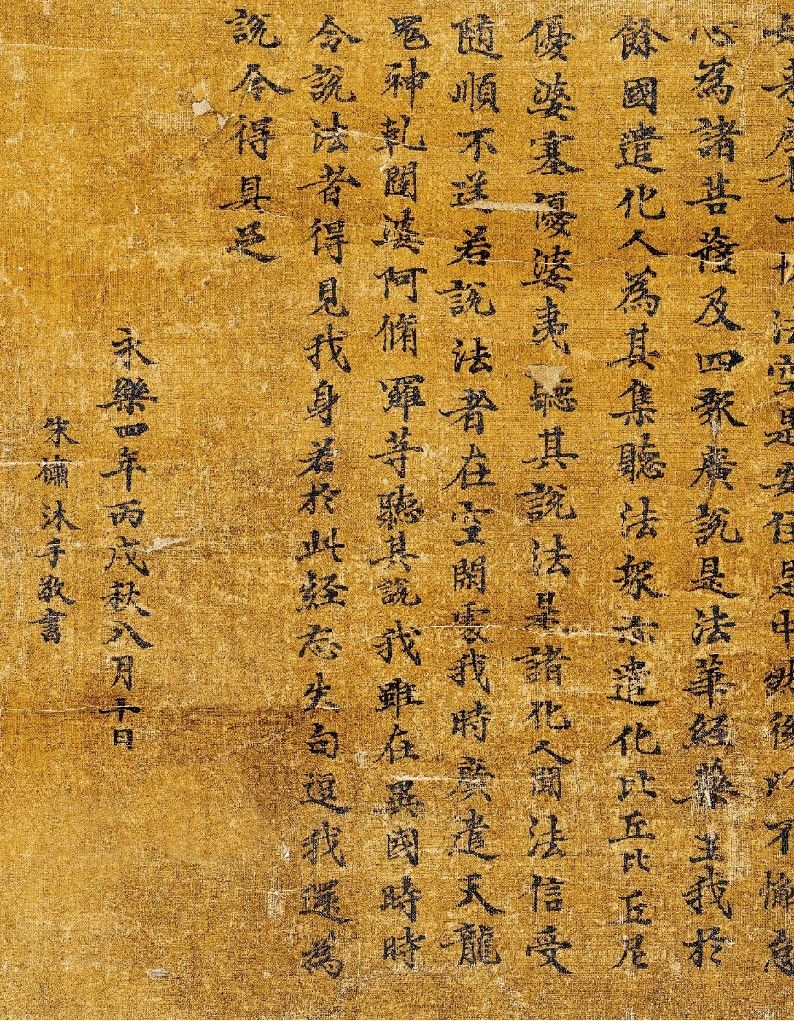 如来座者一切法空是安住是中然後以不懈怠
心為諸菩薩及四衆廣說是法華経藥王我於
餘國遣化人為其集聽法衆亦遣化比丘比丘尼
優婆塞優婆夷聽其說法是諸化人聞法信受
随順不逆若說法者在空閑處我時廣遣天龍
鬼神乾闥婆阿脩羅等聽其說我雖在異國時時
令說法者得見我身若於此経忘失句逗我還為
說令得具足
永樂四年丙戌秋八月十日
朱橚沐手敬書